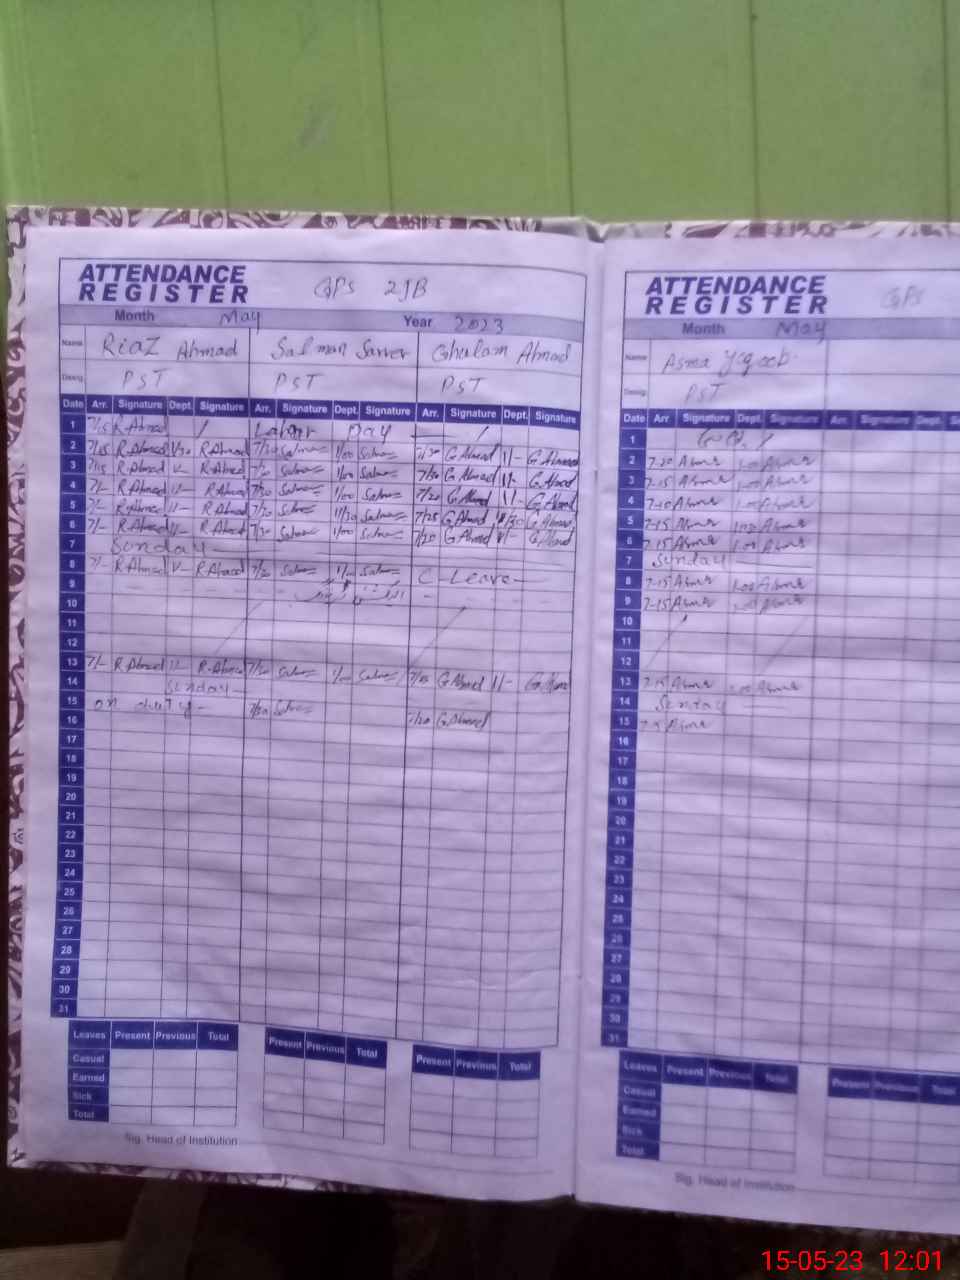 ATTENDANCE REGISTER GPS 2JB
Month May Year 2023
Name Riaz Ahmad Salman Sarwer Ghulam Ahmad
Desig. PST PST PST
Date Arr. Signature Dept. Signature Arr. Signature Dept. Signature Arr. Signature Dept. Signature
1 7/15 R.Ahmad / Labour Day /
2 7/15 R.Ahmad R.Ahmad 7/30 Salman 1/00 Salman 7/30 G Ahmad 1/- G.Ahmad
3 7/15 R.Ahmad R.Ahmad 7/30 Salman 1/00 Salman 7/30 G Ahmad 1/- G.Ahmad
4 7/- R.Ahmad 1/- R.Ahmad 7/30 Salman 1/00 Salman 7/20 G Ahmad 1/- G.Ahmad
5 7/- R.Ahmad 11/- R.Ahmad 7/30 Salman 11/30 Salman 7/25 G Ahmad G.Ahmad
6 7/- R.Ahmad 11/- R.Ahmad 7/30 Salman 1/00 Salman 7/20 G Ahmad 1/- G.Ahmad
7 Sunday
8 7/- R.Ahmad R.Ahmad 7/30 Salman 1/00 Salman C-Leave
9
10
11
12
13 7/- R.Ahmad 1/- R.Ahmad 7/30 Salman 1/00 Salman G Ahmad 1/- G.Ahmad
14 Sunday
15 on duty 7/30 Salman 7/20 G.Ahmad
16
17
18
19
20
21
22
23
24
25
26
27
28
29
30
31
Leaves Present Previous Total Present Previous Total Present Previous Total
Casual
Earned
Sick
Total
Sig. Head of Institution
ATTENDANCE REGISTER GPS
Month May
Name Asma Yaqoob
Desig. PST
Date Arr. Signature Dept. Signature Arr. Signature Dept.
1
2 7-20 Asma 1.00 Asma
3 7-15 Asma 1.00 Asma
4 Asma 1.00 Asma
5 7-15 Asma Asma
6 7-15 Asma 1.00 Asma
7 Sunday
8 7-15 Asma 1.00 Asma
9 7-15 Asma 1.00 Asma
10
11
12
13 7-15 Asma 1.00 Asma
14 Sunday
15 Asma
16
17
18
19
20
21
22
23
24
25
26
27
28
29
30
31
Leaves Present Previous Total Present Previous Total
Casual
Earned
Sick
Total
Sig. Head of Institution
15-05-23 12:01